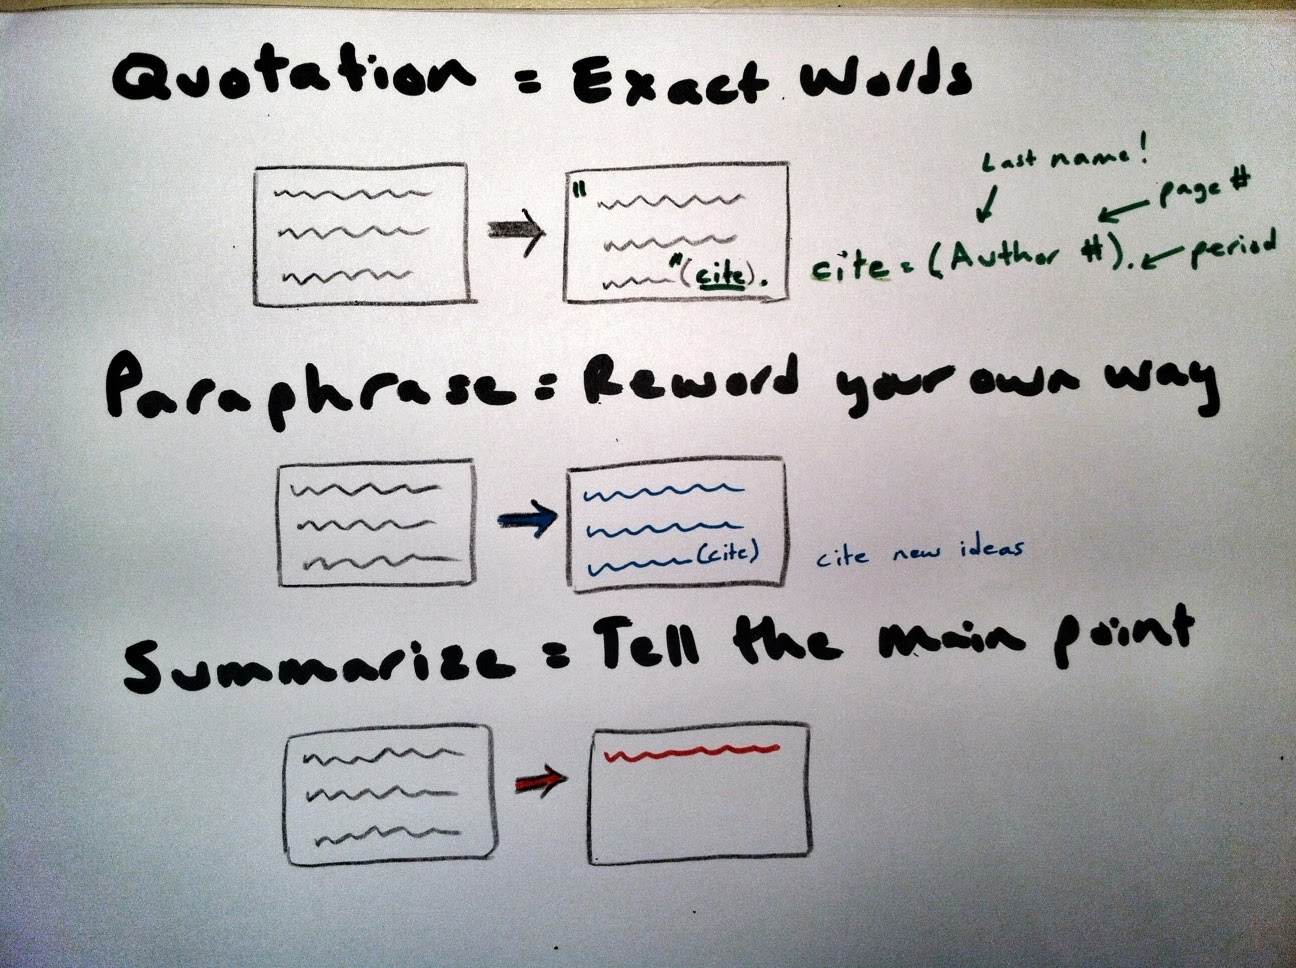 Quotation = Exact Words
Last name!
page #
"
"(cite).
cite = (Author #). period
Paraphrase = Reword your own way
(cite)
cite new ideas
Summarize = Tell the main point